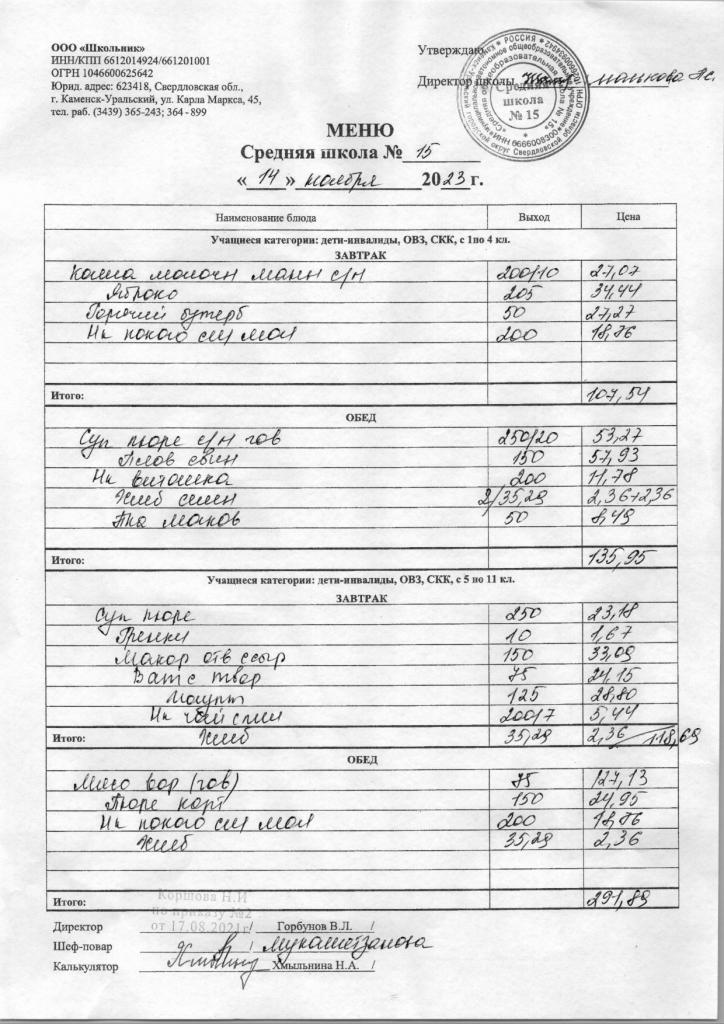 ООО «Школьник»
ИНН/КПП 6612014924/661201001
ОГРН 1046600625642
Юрид. адрес: 623418, Свердловская обл.,
г. Каменск-Уральский, ул. Карла Маркса, 45,
тел. раб. (3439) 365-243; 364 - 899
Утверждаю
Директор школы
Средняя
школа
№ 15
МЕНЮ
Средняя школа № 15
« 14 » ноября 2023 г.
Наименование блюда Выход Цена
Учащиеся категории: дети-инвалиды, ОВЗ, СКК, с 1по 4 кл.
ЗАВТРАК
Каша молочн манн с/н 200/10 27,07
Яблоко 205 34,44
Горячий бутерб 50 27,27
На какао см мол 200 18,76
Итого: 107,54
ОБЕД
Суп пюре с/н гов 250/20 53,27
Плов свин 150 57,93
На витошка 200 11,78
Хлеб смен 2/35,29 2,36+2,36
Пка маков 50 8,49
Итого: 135,95
Учащиеся категории: дети-инвалиды, ОВЗ, СКК, с 5 по 11 кл.
ЗАВТРАК
Суп пюре 250 23,18
Гренки 10 1,67
Макар отв ссыр 150 33,09
Ват с твор 75 24,15
Йогурт 125 28,80
На чай слим 200/7 5,44
Итого: Хлеб 35,29 2,36 118,69
ОБЕД
Мясо (гов) 75 127,13
Пюре карт 150 24,95
На какао см мол 200 18,76
Хлеб 35,29 2,36
Итого: 291,89
Коршова Н.И
по приказу №2
от 17.08.2021г
Директор / Горбунов В.Л. /
Шеф-повар /
Калькулятор Хмыльнина Н.А. /